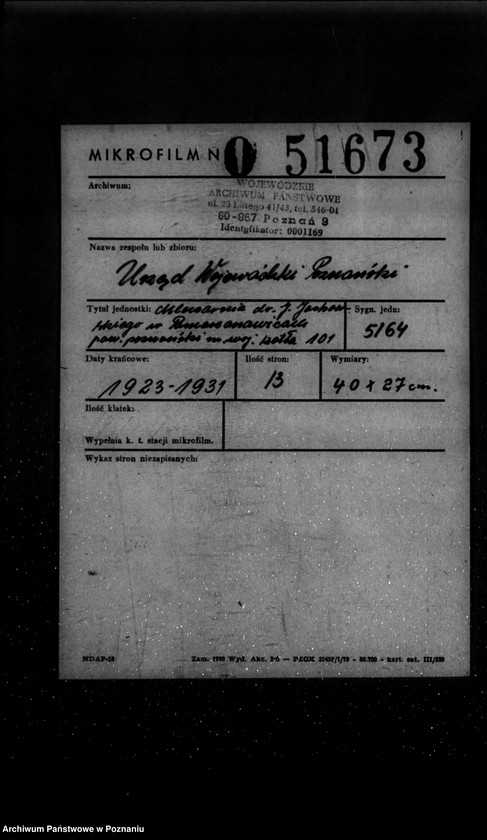 MIKROFILM N O 51673
Archiwum:
WOJEWÓDZKIE
ARCHIWUM PAŃSTWOWE
ul. 23 Lutego 41/43, tel. 546-01
60-967 Poznań 9
Identyfikator: 0001169
Nazwa zespołu lub zbioru:
Urząd Wojewódzki Poznański
Tytuł jednostki: Mleczarnia dr. J. Jackow-
skiego w
pow. poznański nr woj. kotła 101
Sygn. jedn:
5164
Daty krańcowe:
1923-1931
Ilość stron:
13
Wymiary:
40 x 27 cm.
Ilość klatek:
Wypełnia k. t. stacji mikrofilm.
Wykaz stron niezapisanych:
NDAP-16
Zam. Wyd. Akc. Pń — PZGK
Archiwum Państwowe w Poznaniu